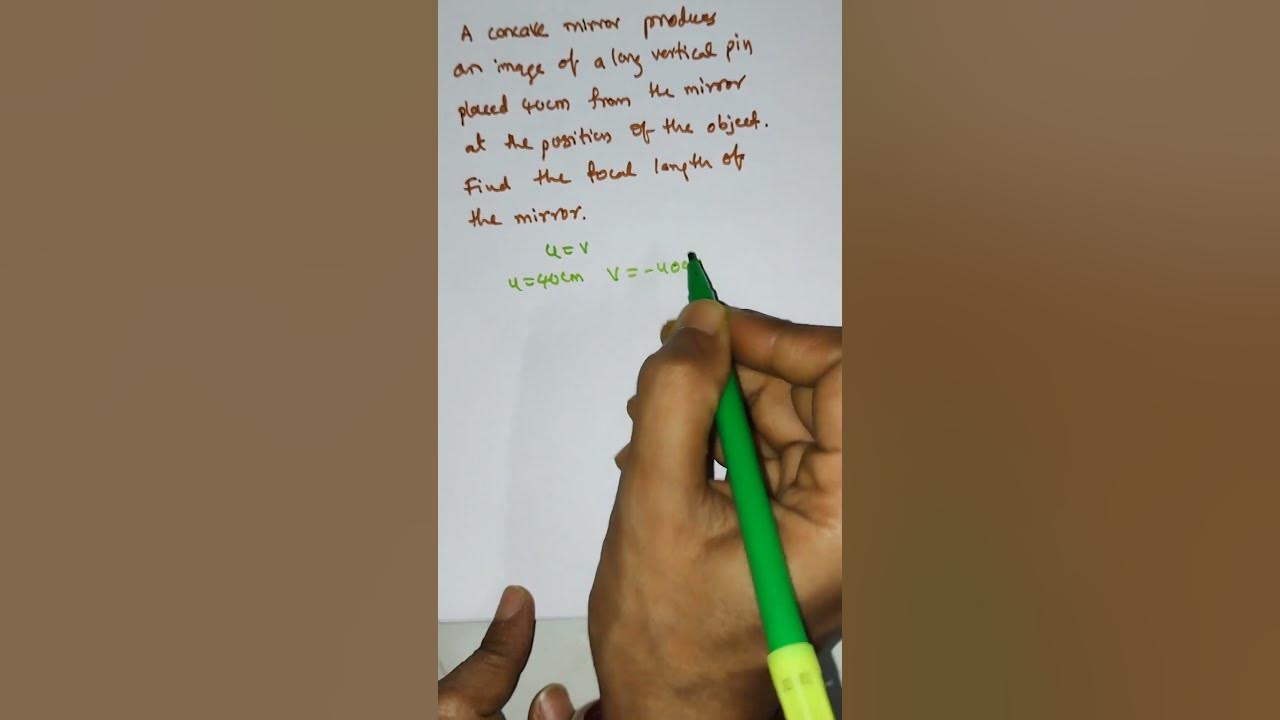 A concave mirror produces
an image of a long vertical pin
placed 40cm from the mirror
at the position of the object.
Find the focal length of
the mirror.
u = v
u = 40cm v = -40